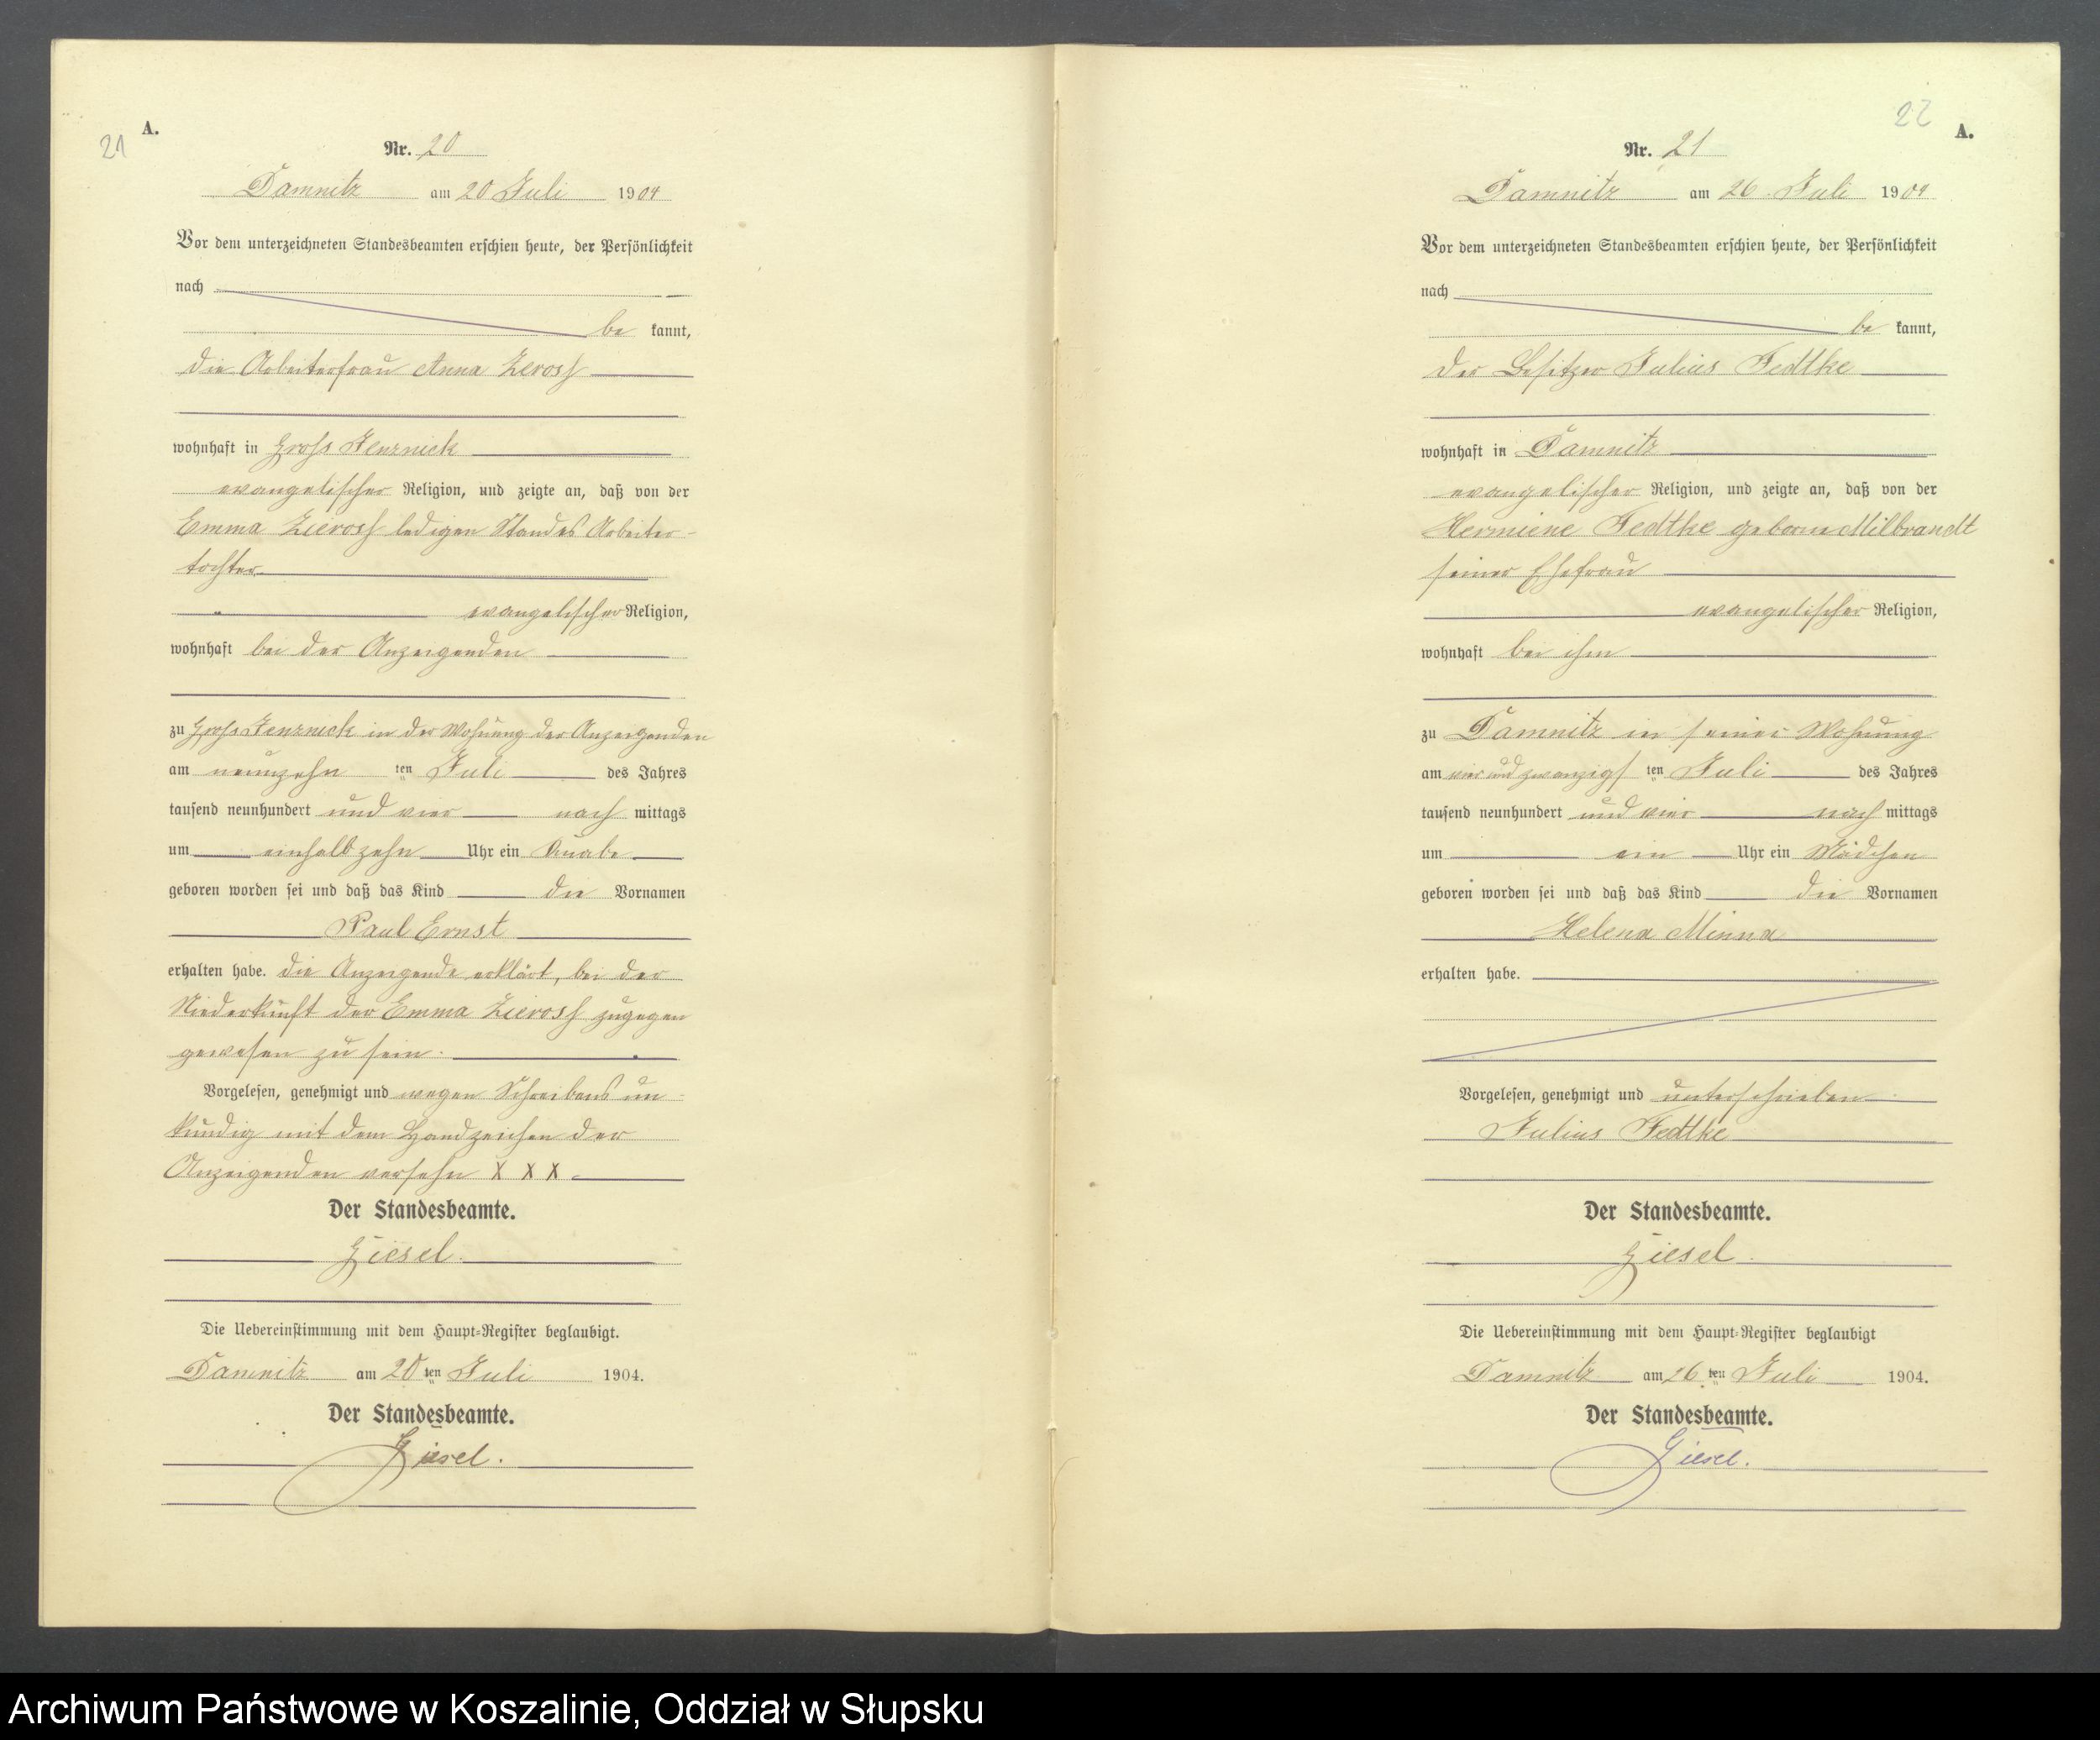 21
A.
Nr. 20
Damnitz am 20 Juli 1904
Vor dem unterzeichneten Standesbeamten erschien heute, der Persönlichkeit
nach
be kannt,
die Arbeiterfrau Anna Zeross
wohnhaft in Gross Jenznick
evangelischer Religion, und zeigte an, daß von der
Emma Zieross ledigen Standes Arbeiter-
tochter
evangelischer Religion,
wohnhaft bei der Anzeigenden
zu Gross Jenznick in der Wohnung der Anzeigenden
am neunzehn ten Juli des Jahres
tausend neunhundert und vier nach mittags
um einhalb zehn Uhr ein Knabe
geboren worden sei und daß das Kind die Vornamen
Paul Ernst
erhalten habe. Die Anzeigende erklärt, bei der
Niederkunft der Emma Zieross zugegen
gewesen zu sein.
Vorgelesen, genehmigt und wegen Schreibens un-
kundig mit dem Handzeichen der
Anzeigenden versehn X X X
Der Standesbeamte.
Giesel.
Die Uebereinstimmung mit dem Haupt-Register beglaubigt.
Damnitz am 20 ten Juli 1904.
Der Standesbeamte.
Giesel.
22
A.
Nr. 21
Damnitz am 26. Juli 1904
Vor dem unterzeichneten Standesbeamten erschien heute, der Persönlichkeit
nach
be kannt,
der Besitzer Julius Fedtke
wohnhaft in Damnitz
evangelischer Religion, und zeigte an, daß von der
Hermiene Fedtke geborne Milbrandt
seiner Ehefrau
evangelischer Religion,
wohnhaft bei ihm
zu Damnitz in seiner Wohnung
am vier und zwanzigs ten Juli des Jahres
tausend neunhundert und vier nach mittags
um ein Uhr ein Mädchen
geboren worden sei und daß das Kind die Vornamen
Helena Minna
erhalten habe.
Vorgelesen, genehmigt und unterschrieben
Julius Fedtke
Der Standesbeamte.
Giesel.
Die Uebereinstimmung mit dem Haupt-Register beglaubigt
Damnitz am 26 ten Juli 1904.
Der Standesbeamte.
Giesel.
Archiwum Państwowe w Koszalinie, Oddział w Słupsku